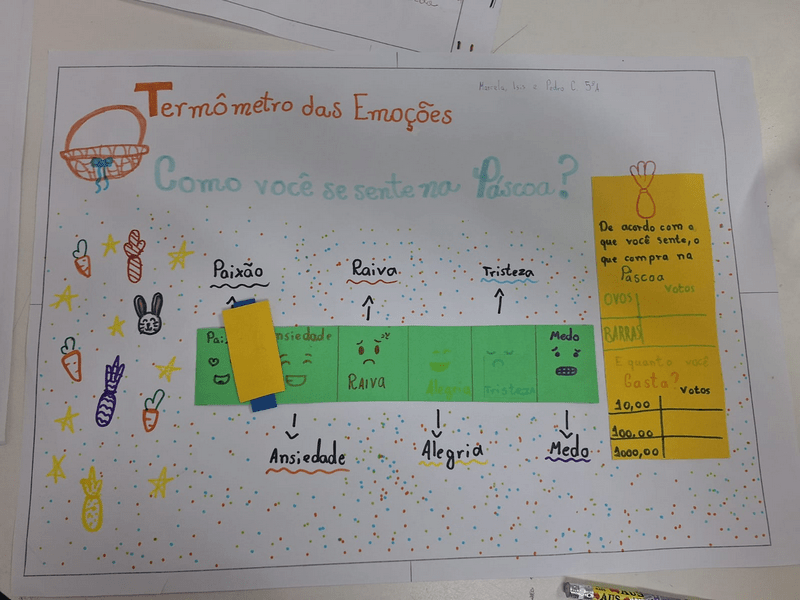 Termômetro das Emoções
Como você se sente na Páscoa?
Paixão
Raiva
Tristeza
Ansiedade
Raiva
Alegria
Tristeza
Medo
Ansiedade
Alegria
Medo
De acordo com o
que você sente, o
que compra na
Páscoa
Votos
OVOS
BARRAS
E quanto você
Gasta?
Votos
10,00
100,00
1000,00